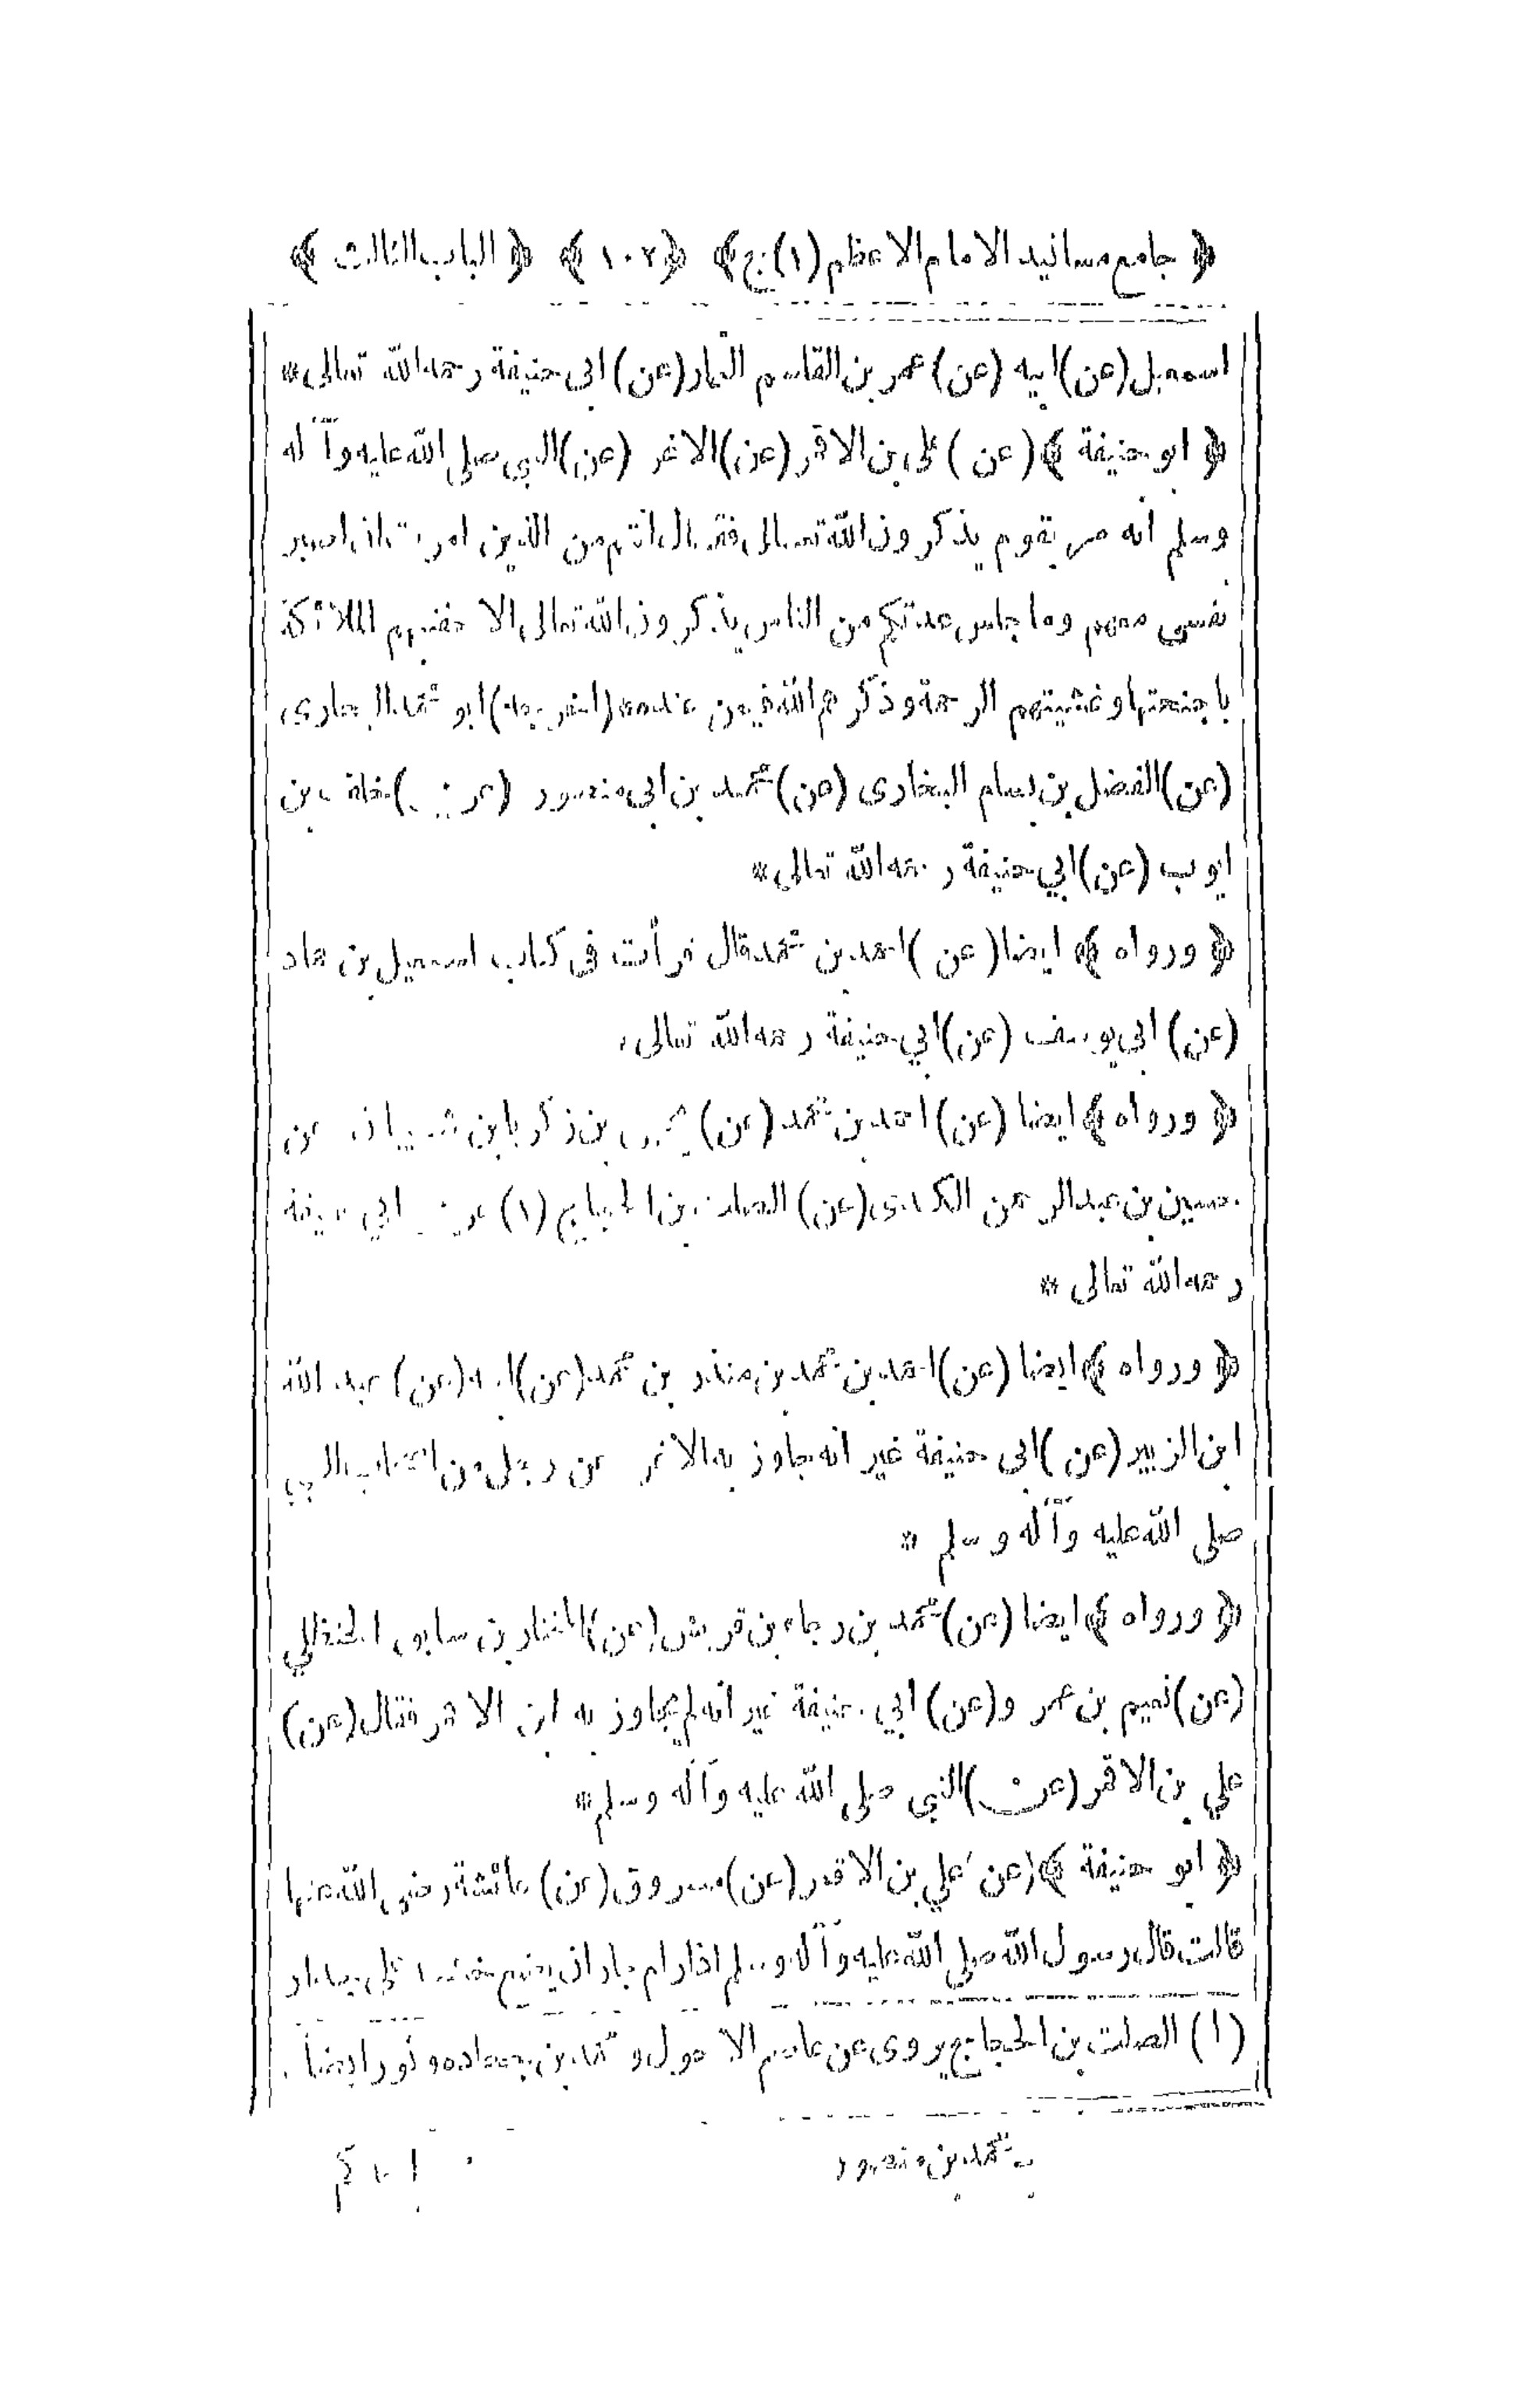 ﴿ جامع مسانيد الامام الاعظم (١) ج ﴾ ﴿ ١٠٢ ﴾ ﴿ الباب الثالث ﴾
اسمعيل (عن) ابيه (عن) عمر بن القاسم التمار (عن) ابى حنيفة رحمه الله تعالى *
﴿ ابو حنيفة ﴾ (عن) على بن الاقمر (عن) الاغر (عن) النبى صلى الله عليه وآله
وسلم انه مر بقوم يذكرون الله تعالى فقال انتم من الذين امرت ان اصبر
نفسى معهم وما جلس عدتكم من الناس يذكرون الله تعالى الا حفتهم الملائكة
باجنحتها وغشيتهم الرحمة وذكرهم الله فيمن عنده (اخرجه) ابو محمد البخارى
(عن) الفضل بن بسام البخارى (عن) محمد بن ابى منصور (عن) خلف بن
ايوب (عن) ابي حنيفة رحمه الله تعالى *
﴿ ورواه ﴾ ايضا (عن) احمد بن محمد قال قرأت فى كتاب اسمعيل بن حماد
(عن) ابى يوسف (عن) ابي حنيفة رحمه الله تعالى
﴿ ورواه ﴾ ايضا (عن) احمد بن محمد (عن) يحيى بن زكريا بن شيبان عن
حسين بن عبد الرحمن الكندى (عن) الصلت بن الحجاج (١) عن ابي حنيفة
رحمه الله تعالى *
﴿ ورواه ﴾ ايضا (عن) احمد بن محمد بن منذر بن محمد (عن) ابيه (عن) عبد الله
ابن الزبير (عن) ابى حنيفة غير انه جاوز به الاغر عن رجل من اصحاب النبي
صلى الله عليه وآله وسلم *
﴿ ورواه ﴾ ايضا (عن) محمد بن رجاء بن قريش (عن) المختار بن سابق الحنظلي
(عن) نعيم بن عمرو (عن) ابي حنيفة غير انه لم يجاوز به ابن الاقمر فقال (عن)
علي بن الاقمر (عن) النبي صلى الله عليه وآله وسلم *
﴿ ابو حنيفة ﴾ (عن) علي بن الاقمر (عن) مسروق (عن) عائشة رضى الله عنها
قالت قال رسول الله صلى الله عليه وآله وسلم اذا رام جار ان يضع خشبة على جدار
(١) الصلت بن الحجاج يروى عن عاصم الاحول و محمد بن جحادة وثور ايضا
محمد بن منصور